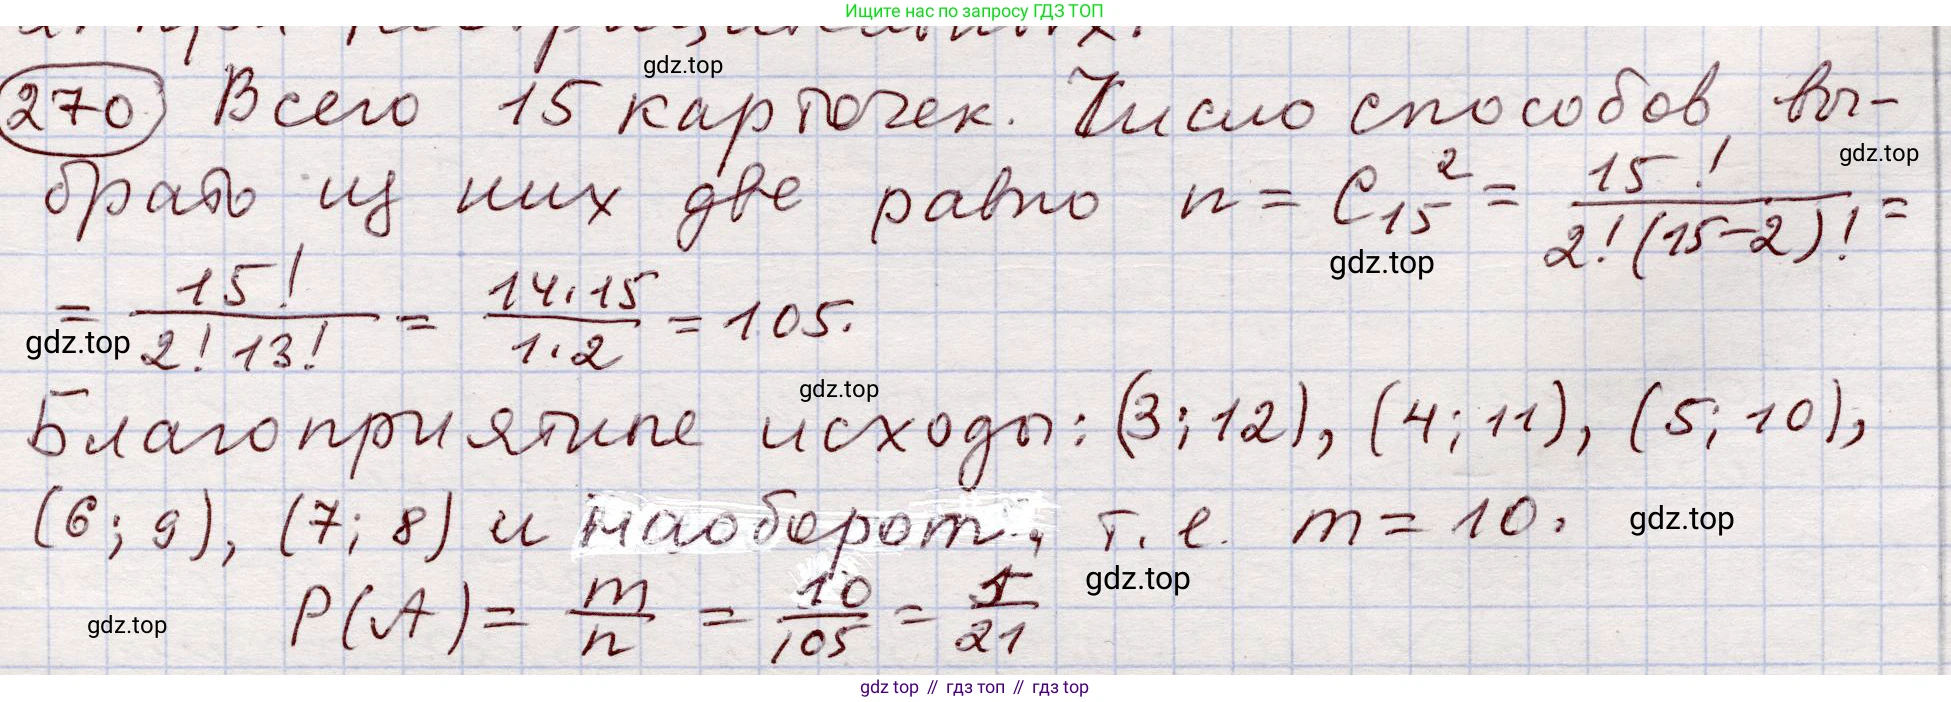 Ищите нас по запросу ГДЗ ТОП
gdz.top
270 Всего 15 карточек. Число способов вы-
gdz.top
брать из них две равно n = C₁₅² = 15! / 2!(15-2)! =
gdz.top
= 15! / 2! 13! = 14·15 / 1·2 = 105.
gdz.top
gdz.top
Благоприятные исходы: (3; 12), (4; 11), (5; 10),
(6; 9), (7; 8) и наоборот, т. е. m = 10.
gdz.top
gdz.top
P(A) = m/n = 10/105 = 1/21
gdz.top
gdz top // гдз топ // гдз top